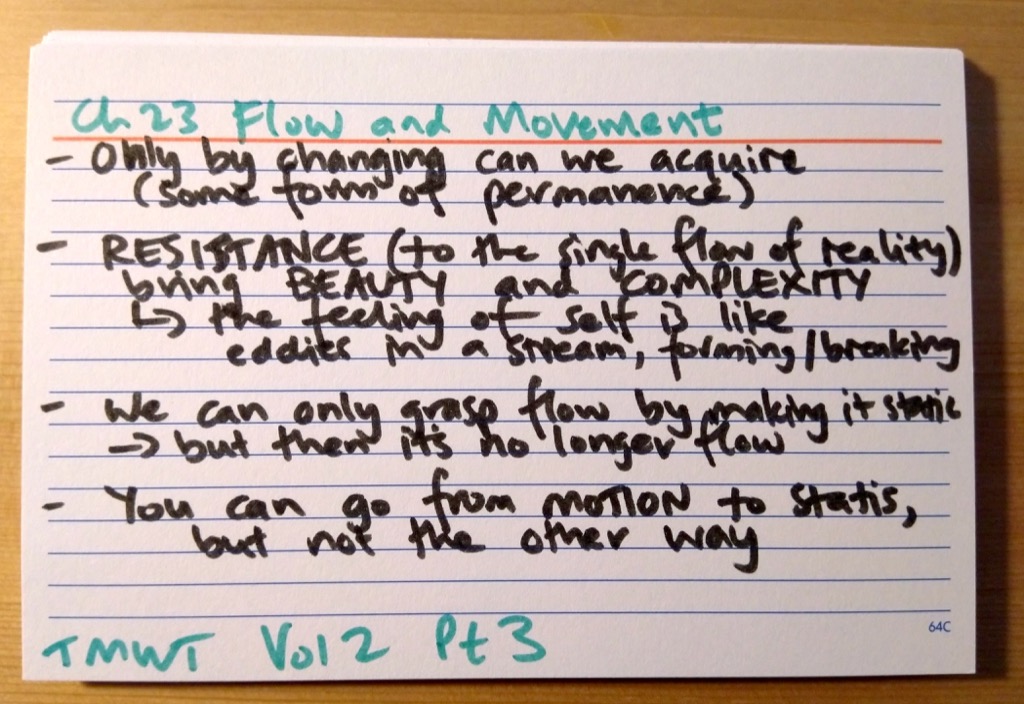 Ch 23 Flow and Movement
- Only by changing can we acquire
(some form of permanence)
- RESISTANCE (to the single flow of reality)
bring BEAUTY and COMPLEXITY
↳ the feeling of self is like
eddies in a stream, forming/breaking
- We can only grasp flow by making it static
→ but then it's no longer flow
- You can go from MOTION to statis,
but not the other way
64C
TMWT Vol 2 Pt 3